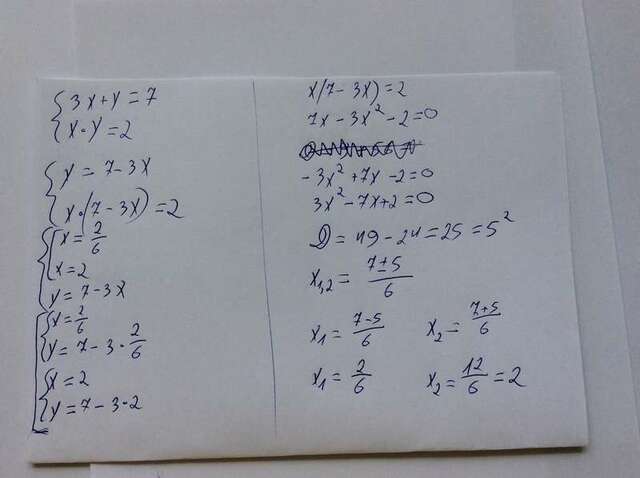 { 3x+y=7
{ x·y=2
{ y=7-3x
{ x·(7-3x)=2
{ [ x=2/6
[ x=2
y=7-3x
[ { x=2/6
{ y=7-3·2/6
{ x=2
{ y=7-3·2
x(7-3x)=2
7x-3x²-2=0
-3x²+7x-2=0
3x²-7x+2=0
D=49-24=25=5²
x1,2=7±5/6
x1=7-5/6 x2=7+5/6
x1=2/6 x2=12/6=2